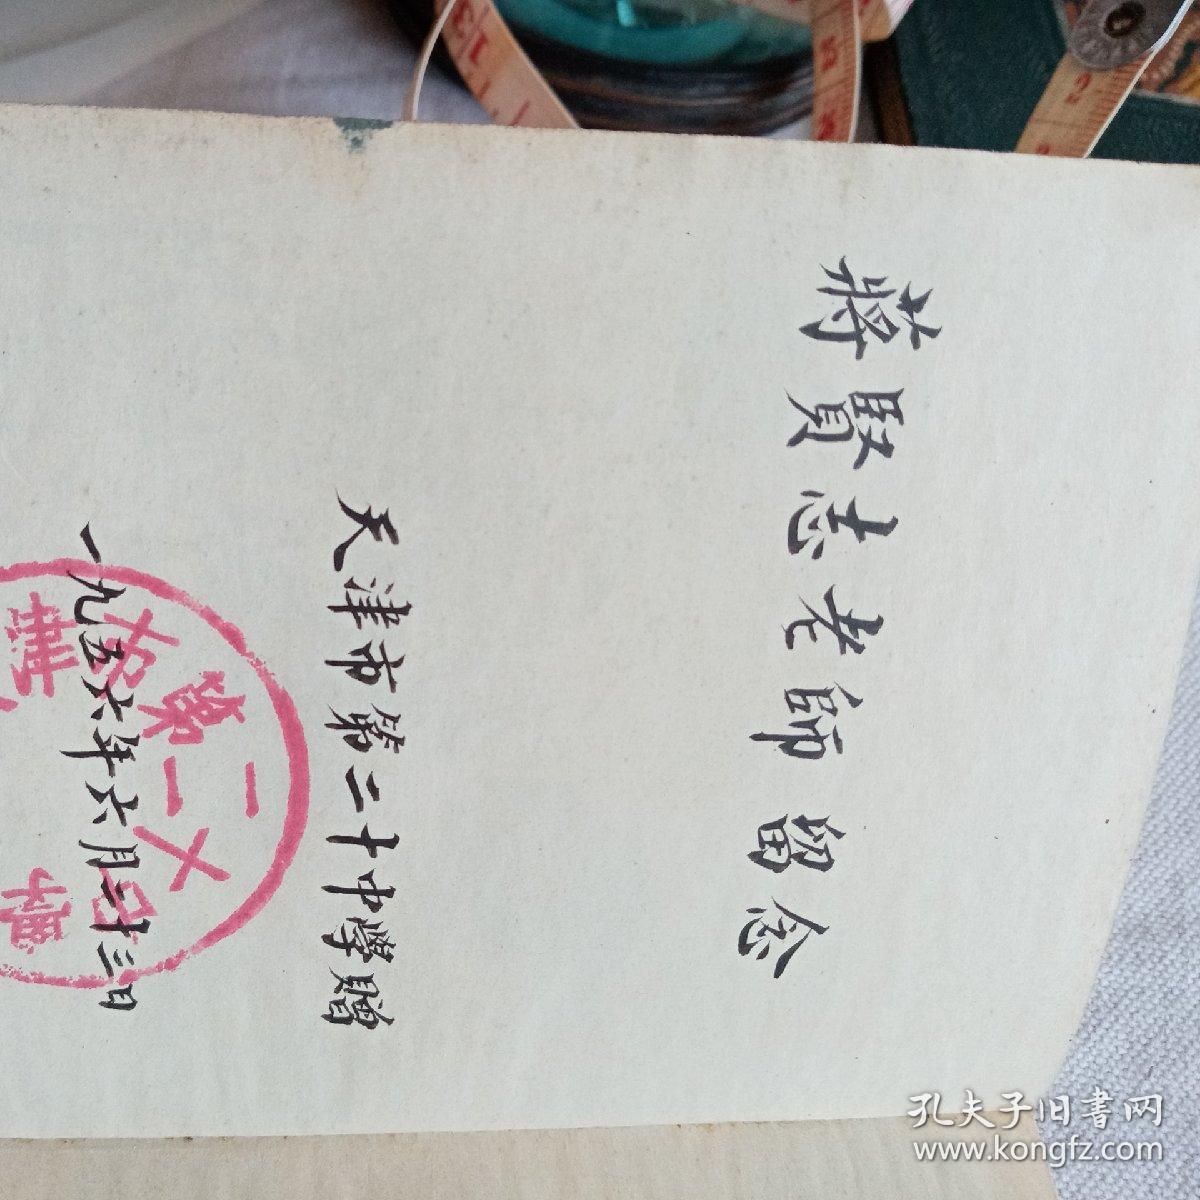 蔣賢志老師留念
天津市第二十中學贈
一九五六年六月二十三日
孔夫子旧書网
www.kongfz.com